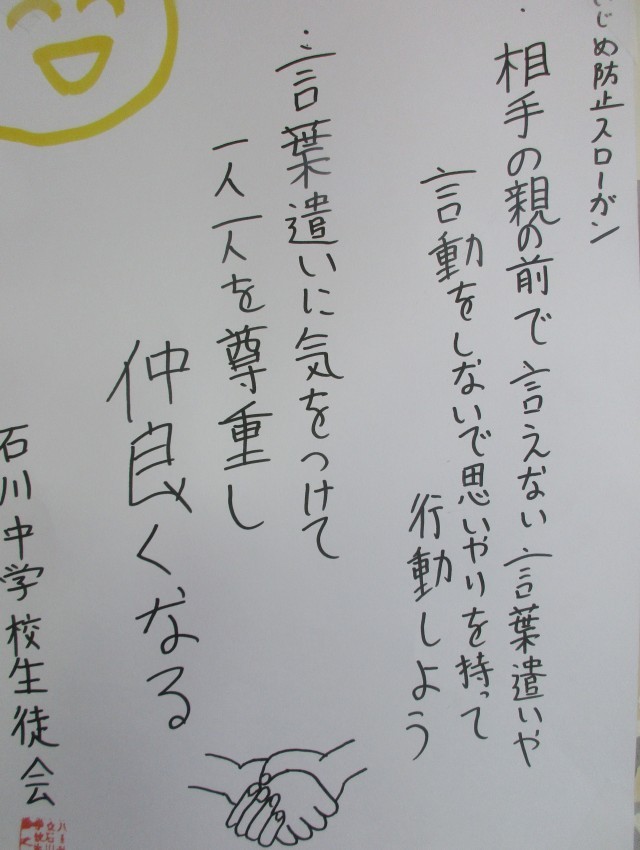 いじめ防止スローガン
・相手の親の前で言えない言葉遣いや
言動をしないで思いやりを持って
行動しよう
・言葉遣いに気をつけて
一人一人を尊重し
仲良くなる
石川中学校生徒会